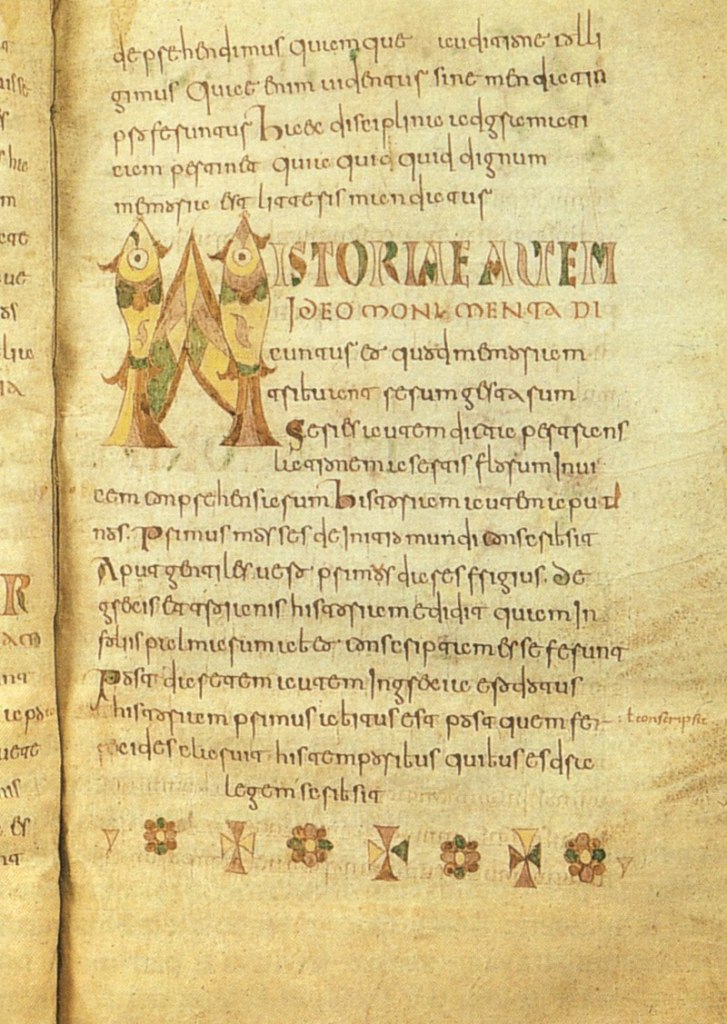 deprehendimus quam que auditione colli
gimus Quae enim uidentur sine mendatio
proferuntur Haec disciplina ad gramati
cam pertinet quia quid quid dignum
memoria est litteris mandatur
HISTORIAE AUTEM
IDEO MONUMENTA DI
cuntur eo quod memoriam
tribuant rerum gestarum
Series autem dicta per trans
lationem a sertis florum Inui
cem conprehensarum Historiam autem aput
nos. Primus moses de Initio mundi conscribsit
Aput gentiles uero primus dares frigius. de
grecis et troianis historiam edidit quam In
foliis palmarum ab eo conscriptam esse ferunt
Post daretem autem In grecia erodotus
historiam primus abitus est post quem fe
recides claruit his temporibus quibus esdra
legem scribsit
conscripsit